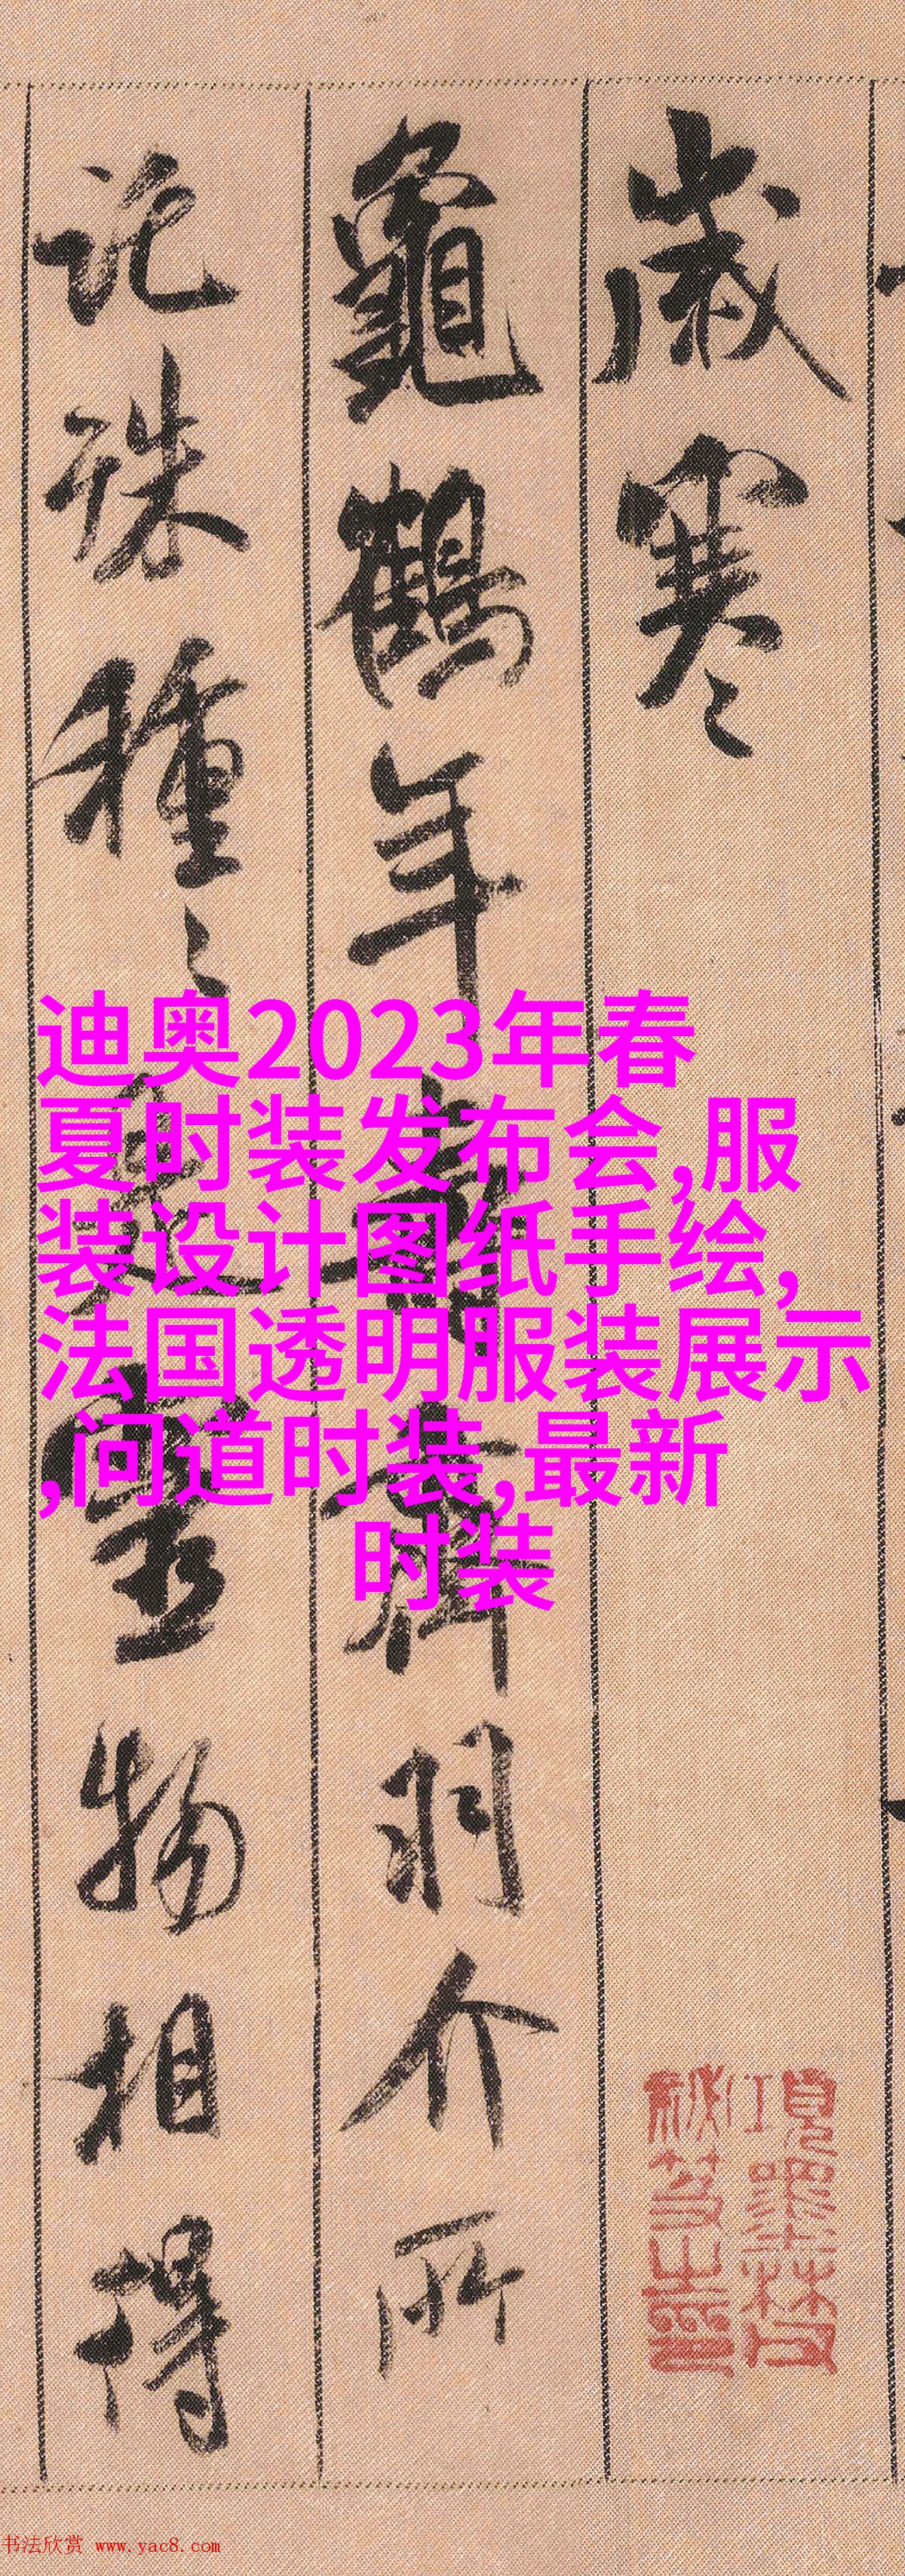 歲寒
龜鶴年壽齊羽介所
託殊種々是靈物相得
迪奥2023年春
夏时装发布会,服
装设计图纸手绘,
法国透明服装展示
,问道时装,最新
时装
項墨林父
秘笈之印
书法欣赏 www.yac8.com